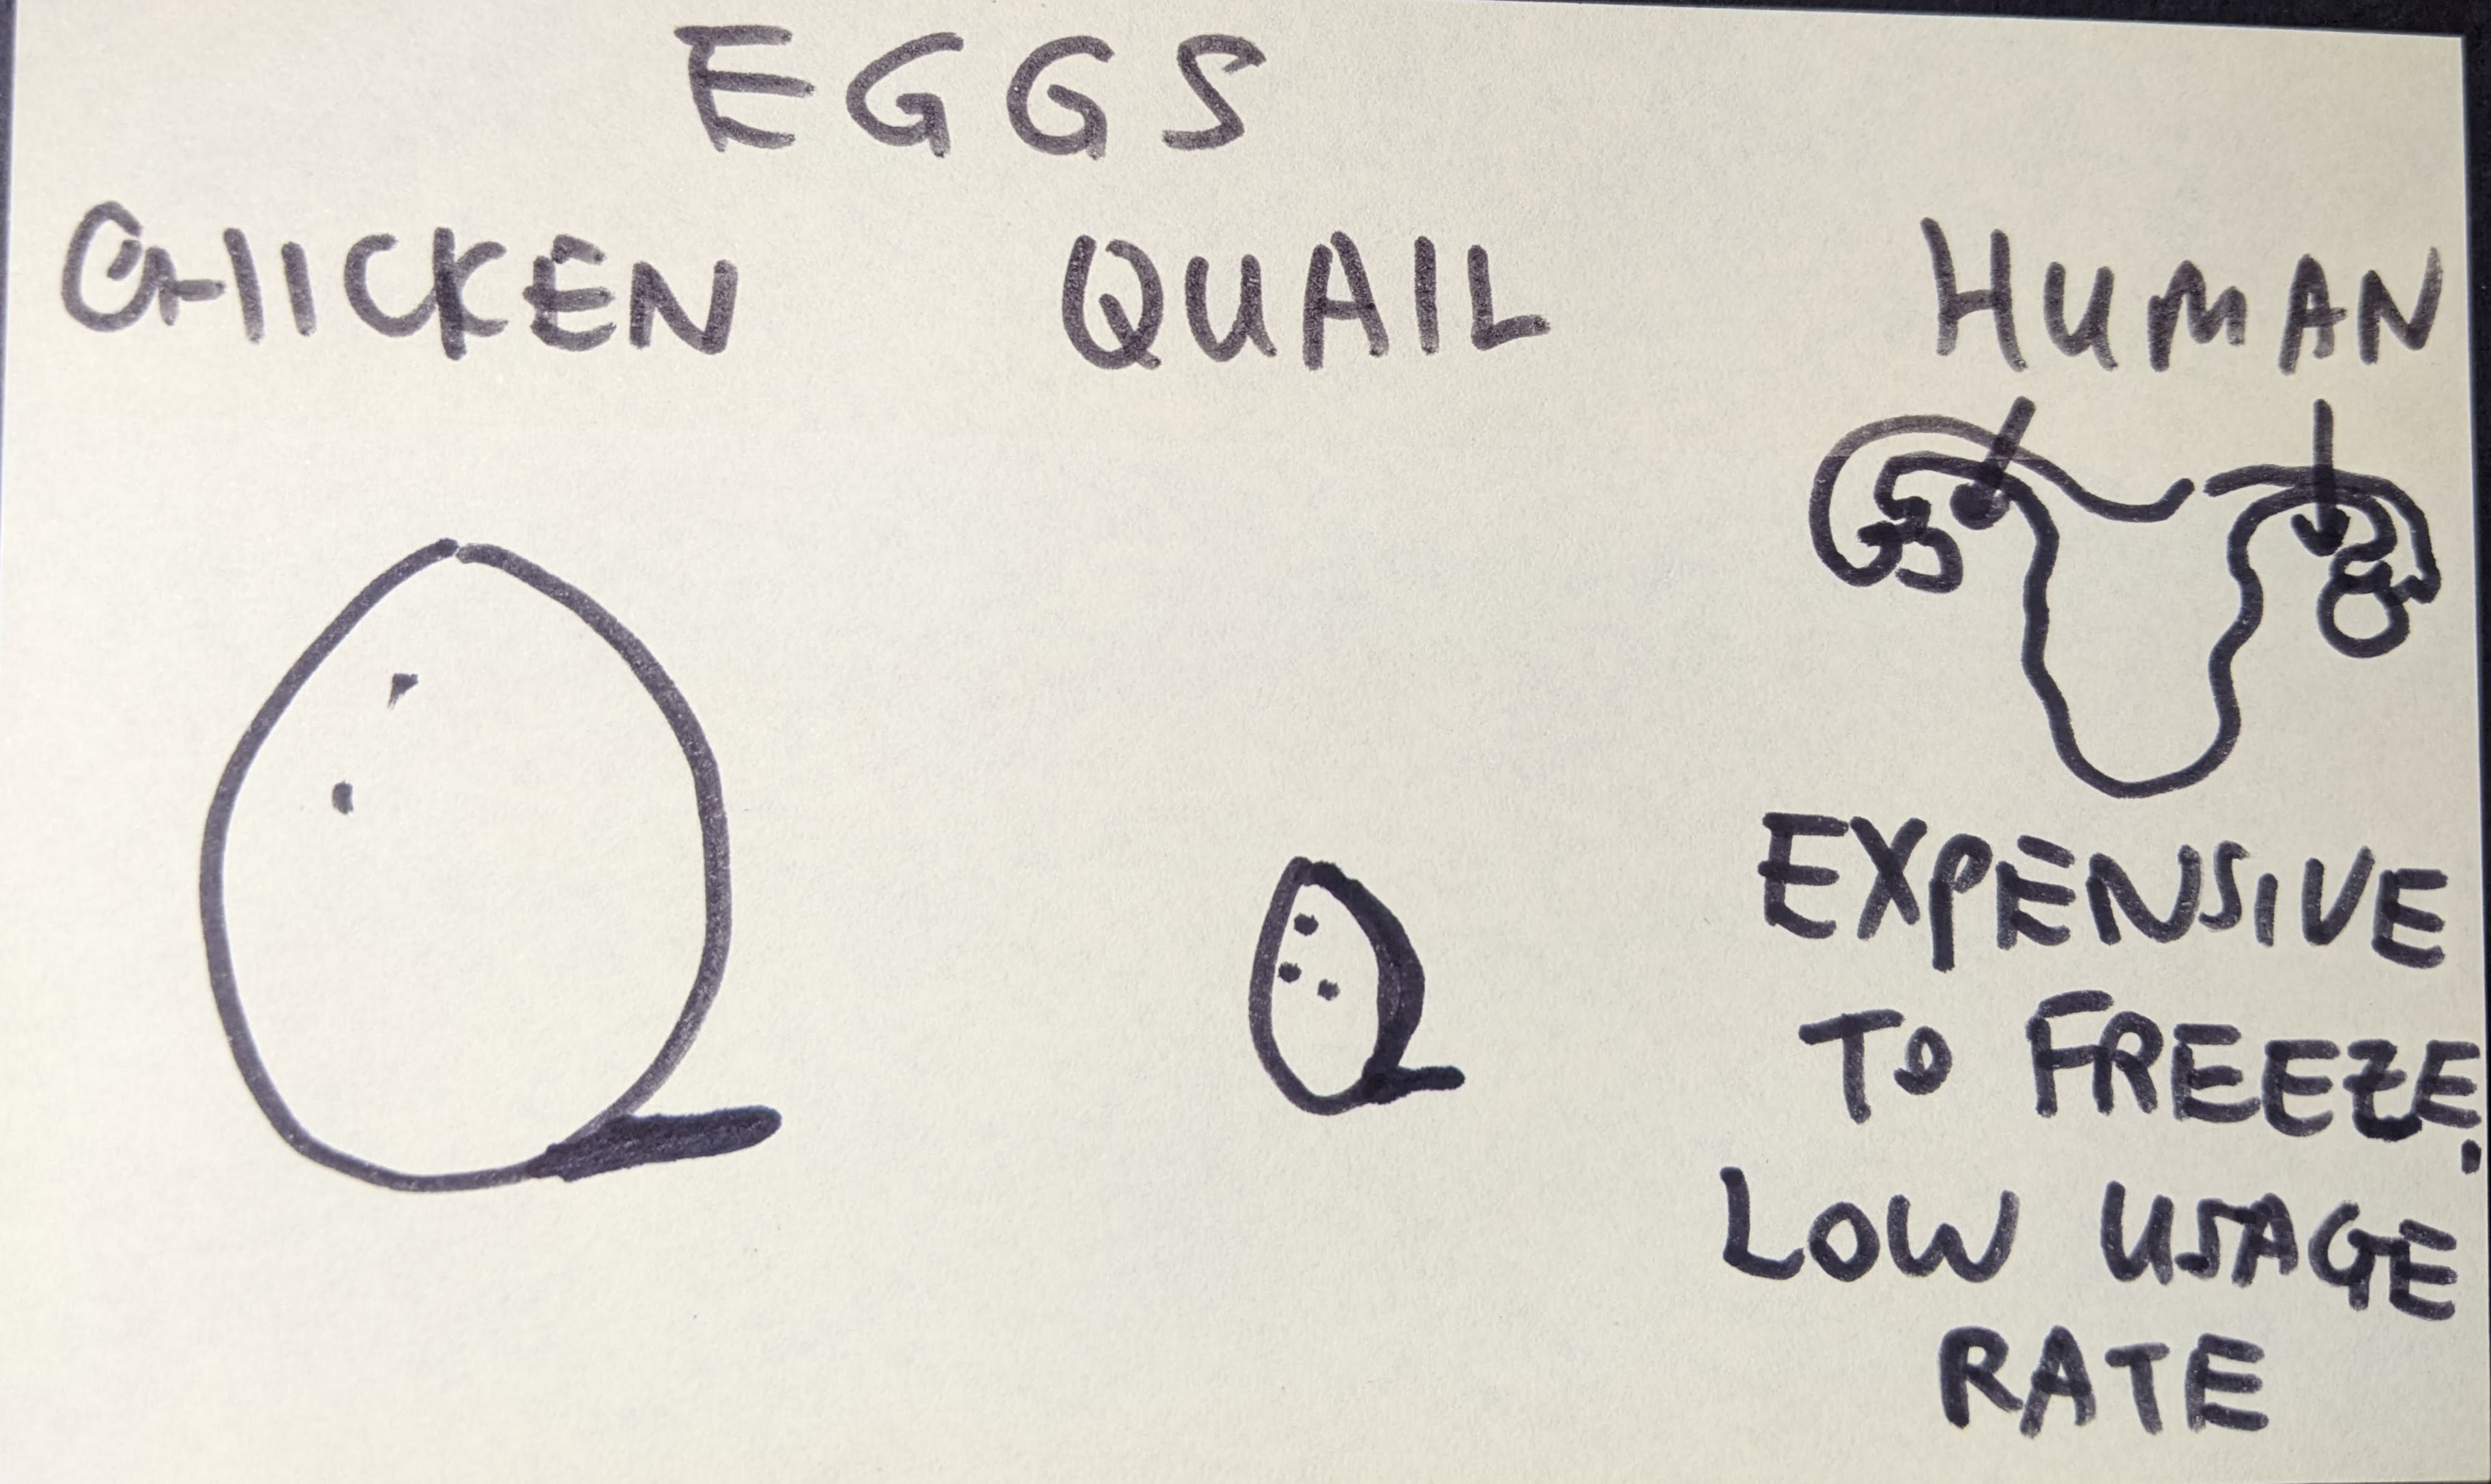 EGGS
CHICKEN QUAIL HUMAN
EXPENSIVE
TO FREEZE.
LOW USAGE
RATE